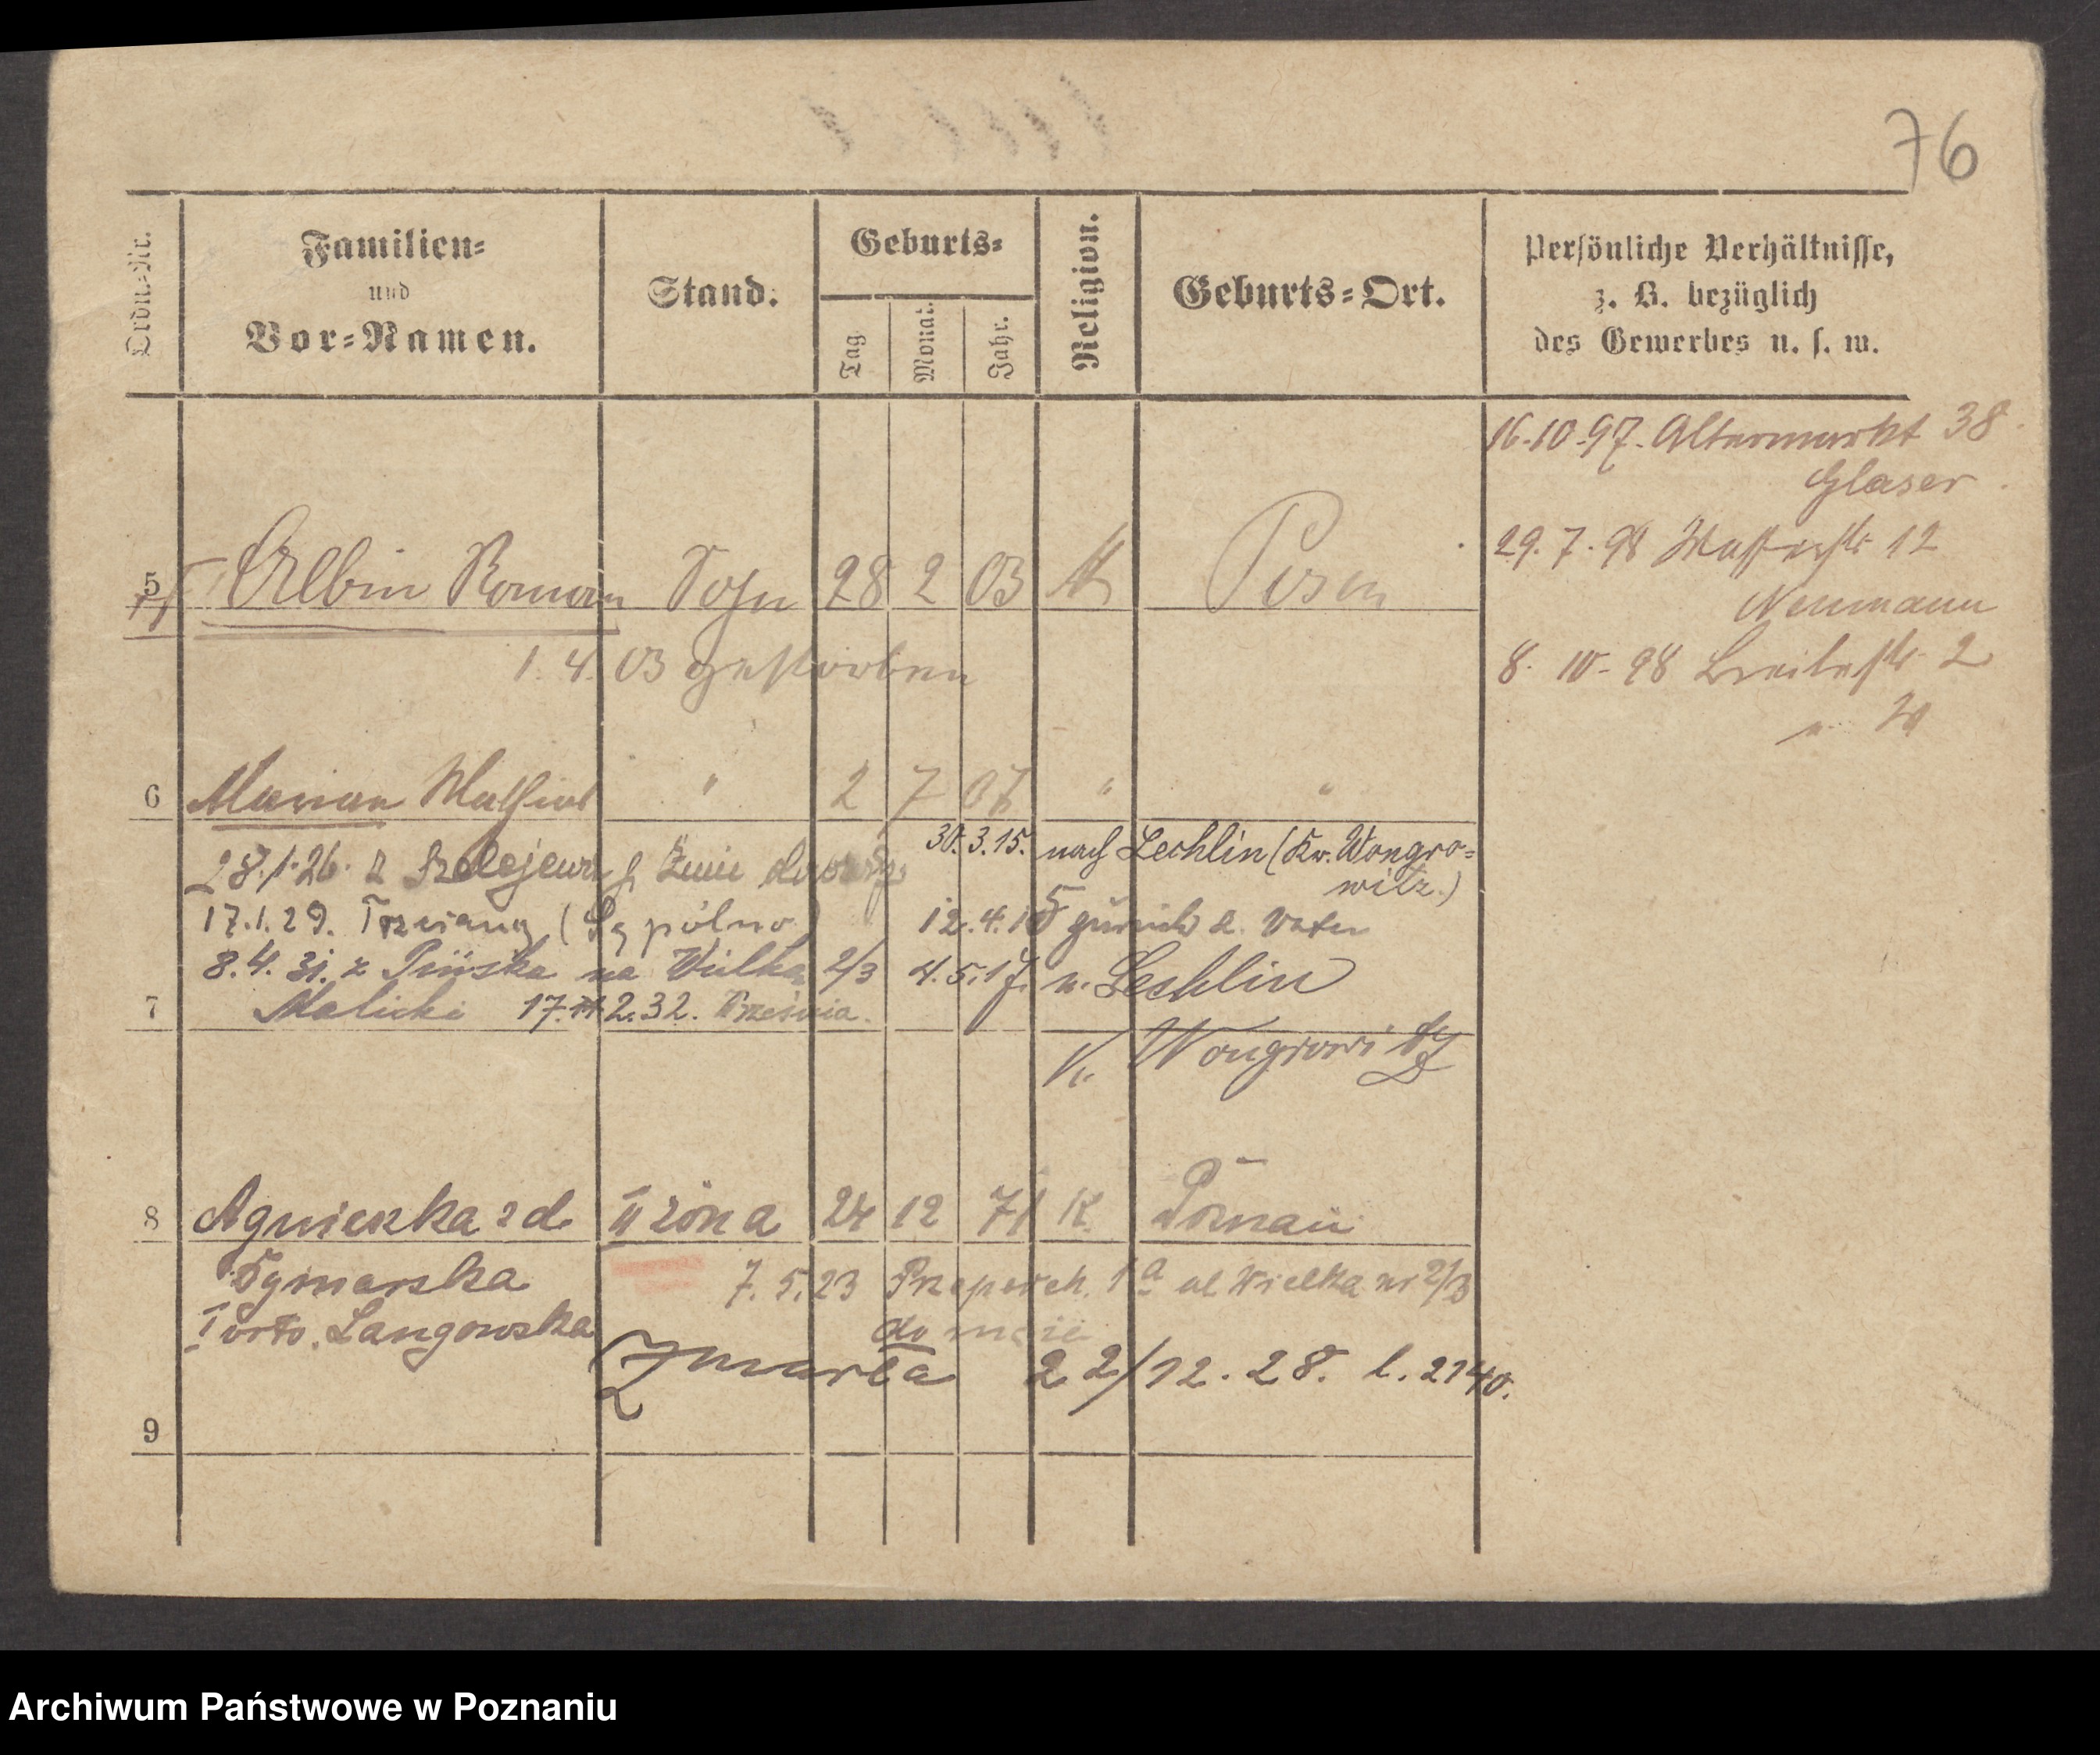 76
Ordn.-Nr.
Familien-
und
Vor-Namen.
Stand.
Geburts-
Tag
Monat.
Jahr.
Religion.
Geburts-Ort.
Persönliche Verhältnisse,
z. B. bezüglich
des Gewerbes u. s. w.
16.10.97. Altermarkt 38
Glaser
29.7.98 12
Neumann
8. 10. 98 Breitestr. 2
5 Albin Roman Sohn 28 2 03 K Posen
1. 4. 03 gestorben
6 Marian " 2 7 07 " "
30.3.15. nach Lechlin (Kr. Wongro=
witz.)
28.1.26. z
17.1.29. (Sępólno)
12.4.15 zurück z. Vater
8.4.31. z na 2/3
4.5.17. n. Lechlin
7 Malicki 17. 2.32. Września.
K. Wongrowitz
8 Agnieszka z d. II żona 24 12 71 K. Poznań
Tymarska
7. 5. 23 ul Wielka nr 2/3
I voto. Langowska
Zmarła 22/12. 28. l. 2140.
9
Archiwum Państwowe w Poznaniu